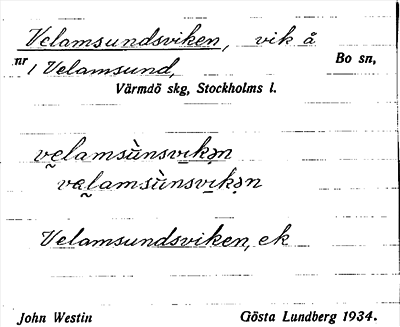 Velamsundsviken, vik å
nr 1 Velamsund, Bo sn,
Värmdö skg, Stockholms l.
vẹlamsùnsvikən
vẹlamsùnsvikən
Velamsundsviken, ek
John Westin Gösta Lundberg 1934.